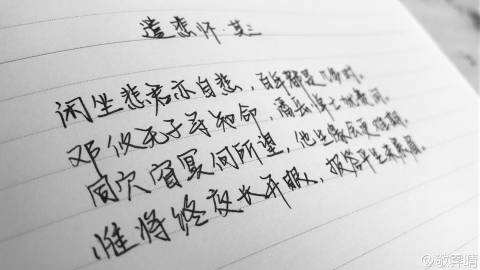 遣悲怀·其三
闲坐悲君亦自悲，百年都是几多时。
邓攸无子寻知命，潘岳悼亡犹费词。
同穴窅冥何所望，他生缘会更难期。
惟将终夜长开眼，报答平生未展眉。